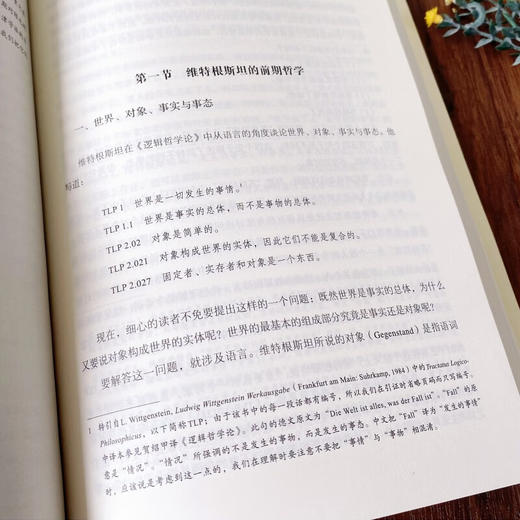 第一节 维特根斯坦的前期哲学
一、世界、对象、事实与事态
维特根斯坦在《逻辑哲学论》中从语言的角度谈论世界、对象、事实与事态。他
写道：
TLP 1 世界是一切发生的事情。1
TLP 1.1 世界是事实的总体，而不是事物的总体。
TLP 2.02 对象是简单的。
TLP 2.021 对象构成世界的实体，因此它们不能是复合的。
TLP 2.027 固定者、实存者和对象是一个东西。
现在，细心的读者不免要提出这样的一个问题：既然世界是事实的总体，为什么
又要说对象构成世界的实体呢？世界的最基本的组成部分究竟是事实还是对象呢？
要解答这一问题，就涉及语言。维特根斯坦所说的对象（Gegenstand）是指语词
1 转引自 L. Wittgenstein, Ludwig Wittgenstein Werkausgabe（Frankfurt am Main: Suhrkamp, 1984）中的 Tractatus Logico-
Philosophicus，以下简称 TLP；由于该书中的每一段话都有编号，所以我们在引证时省略页码而只写编号。
中译本参见贺绍甲译《逻辑哲学论》。此句的德文原文为“Die Welt ist alles, was der Fall ist”。“Fall”的原
意是“情况”。“情况”所强调的不是发生的事物，而是发生的事态。中文把“Fall”译为“发生的事情”
时，应该说是考虑到这一点的，我们在理解时要注意不要把“事情”与“事物”相混淆。